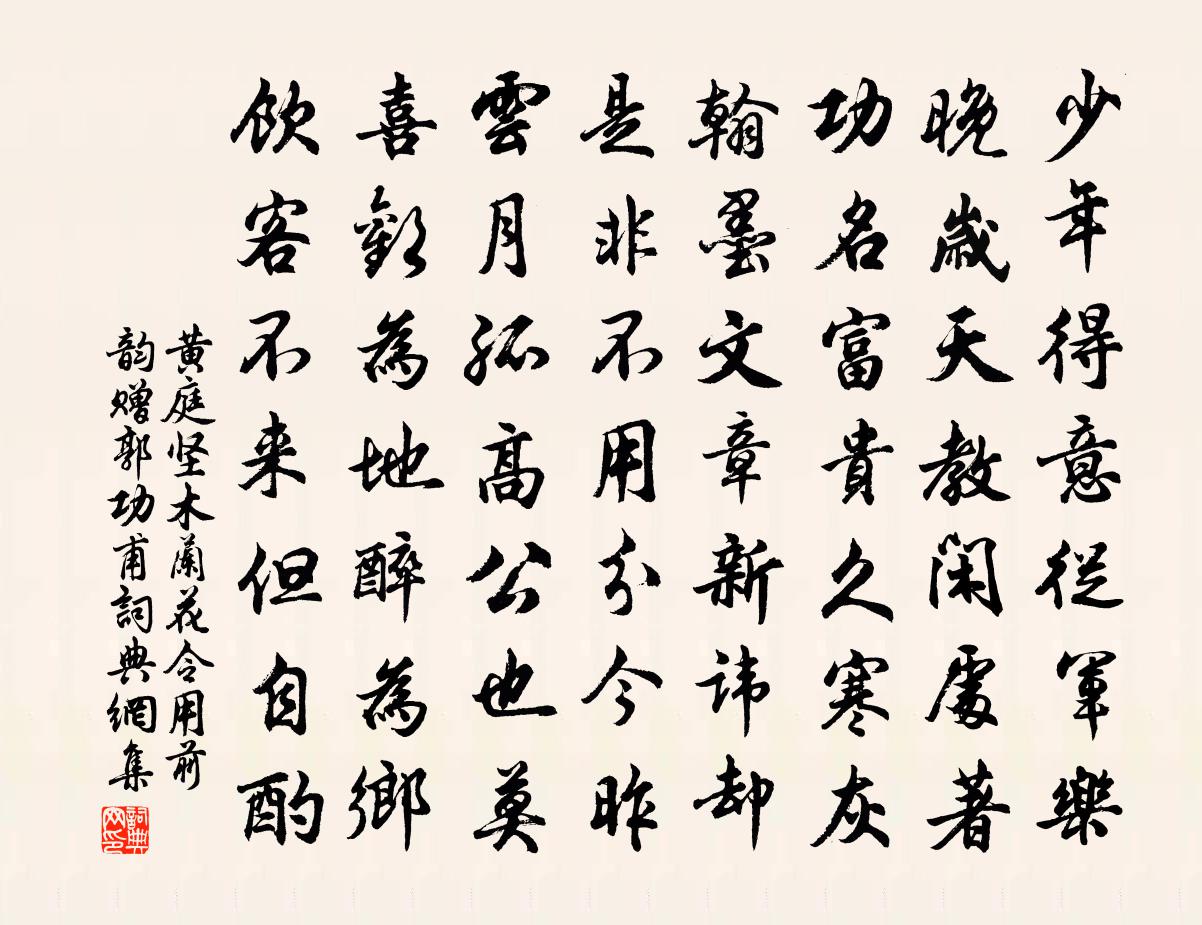 少年得意從軍樂
晚歲天教閑處著
功名富貴久寒灰
翰墨文章新諱却
是非不用分今昨
雲月孤高公也莫
喜歡為地醉為鄉
飲客不来但自酌
黄庭坚木蘭花令用前
韵赠郭功甫詞典網集
詞典
网印